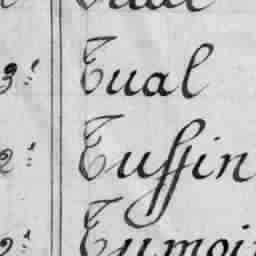 3.! Tual
2.! Tuffin
2.! Tumoi